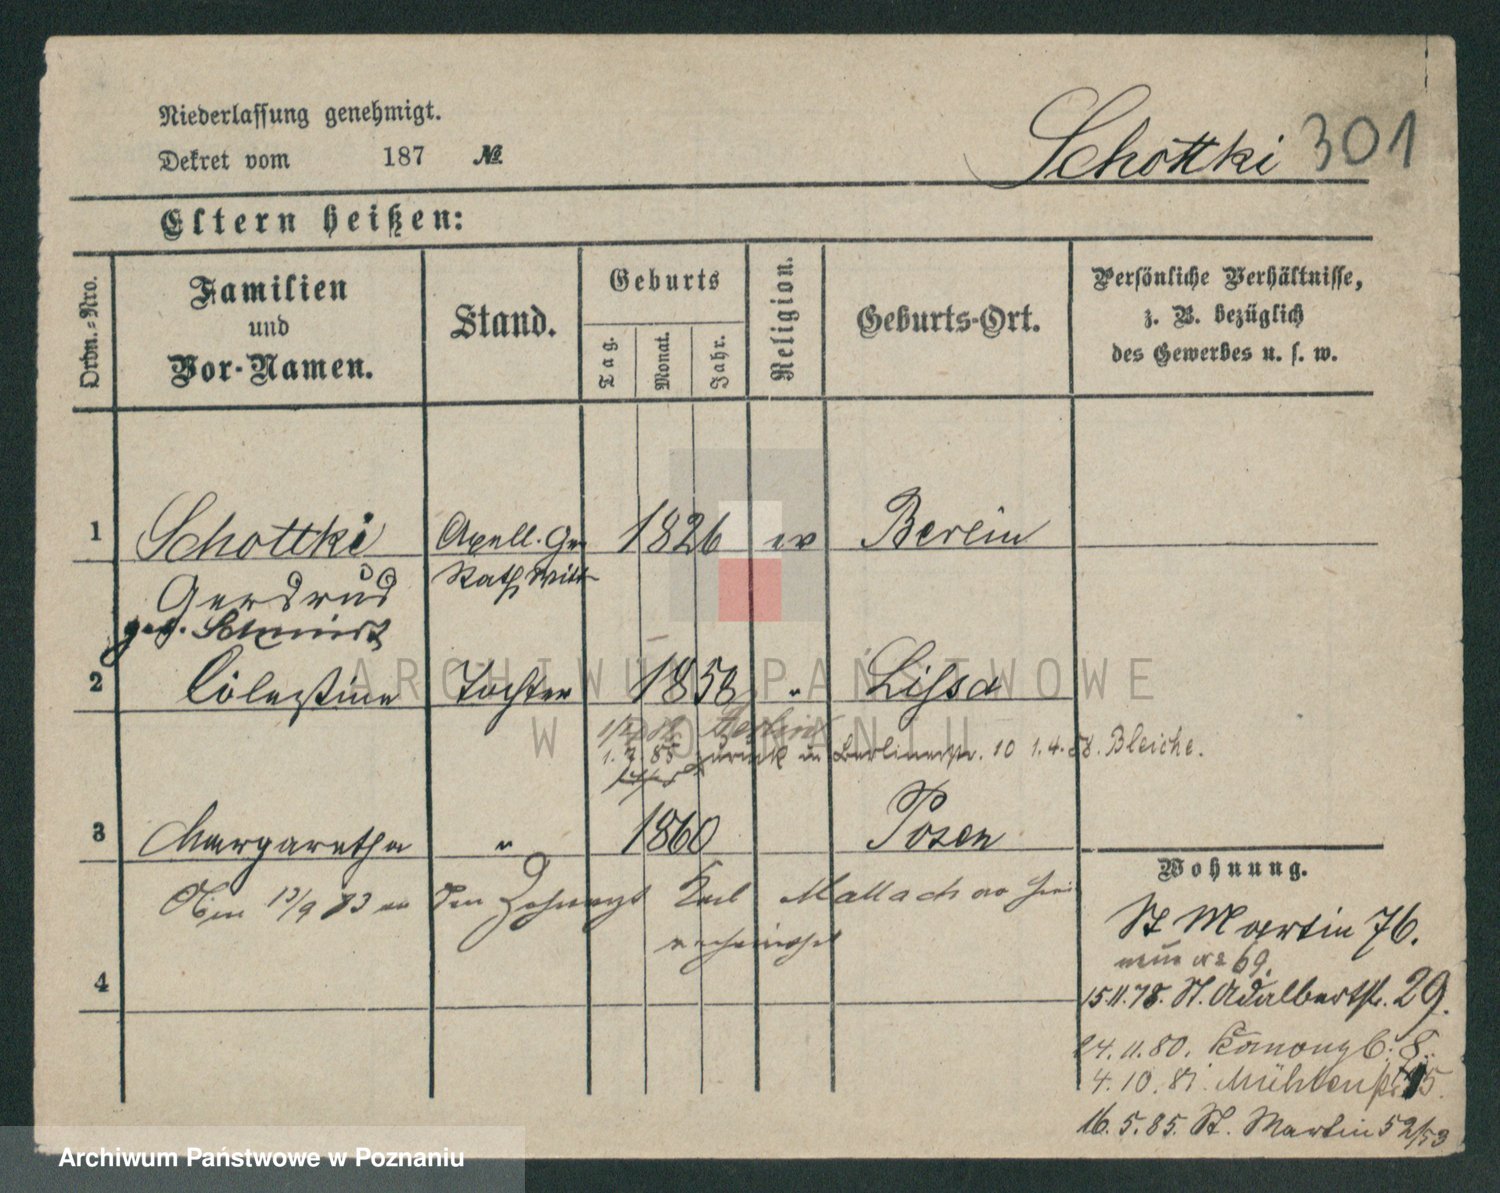 Niederlassung genehmigt.
Dekret vom 187 №
Schottki 301
Eltern heißen:
Ordn.-Nro.
Familien
und
Vor-Namen.
Stand.
Geburts
Tag.
Monat.
Jahr.
Religion.
Geburts-Ort.
Persönliche Verhältnisse,
z. B. bezüglich
des Gewerbes u. s. w.
1 Schottki Apell. Ger 1826 ev Berlin
Rath Witt
Gerdrud
geb.
2 Cölestine Tochter 1858 " Lissa
Berlin
1. 7 85 zurück in Berlinerstr. 10 1.4.88. Bleiche.
3 Margaretha " 1860 Posen
13/9 83 an den Zahnarzt Karl Mallachow hier
verheirathet
4
Wohnung.
St Martin 76.
neue No 69.
15.11.78. St. Adalbertstr. 29.
24.11.80. Kanonenpl. 8.
4.10.81. Mühlenstr. 15.
16.5.85. St. Martin 52/53
ARCHIWUM PAŃSTWOWE
W POZNANIU
Archiwum Państwowe w Poznaniu